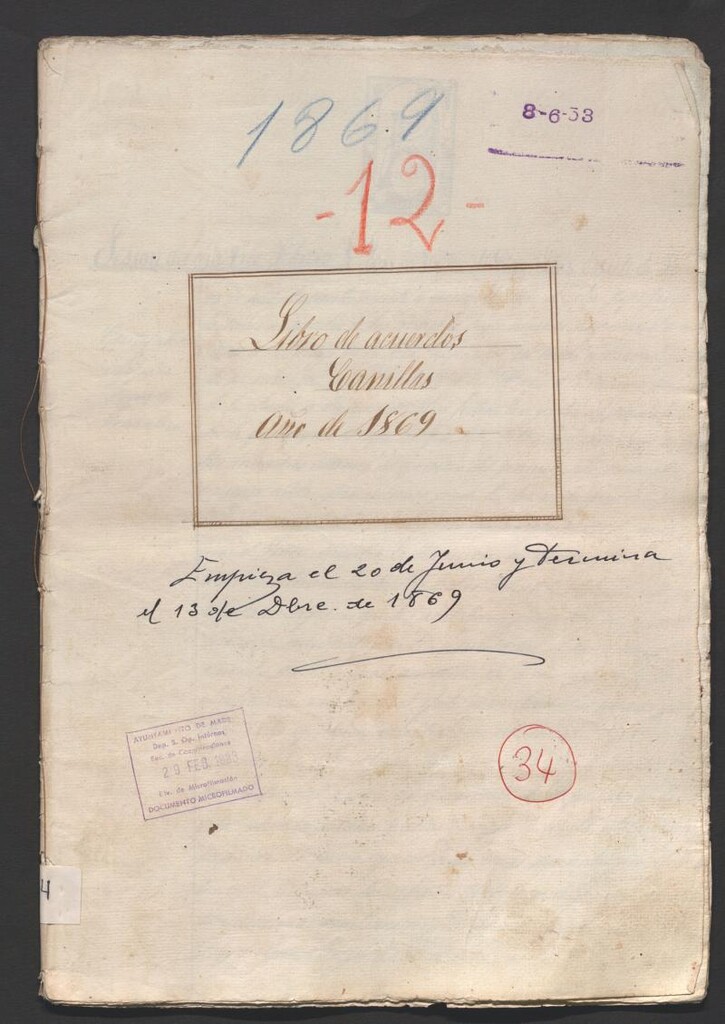 1869
8-6-53
-12-
Libro de acuerdos
Canillas
Año de 1869
Empieza el 20 de Junio y termina
el 13 de Dbre. de 1869
AYUNTAMIENTO DE
Dep. S.
29 FEB.
de Microfilmación
DOCUMENTO MICROFILMADO
34
4